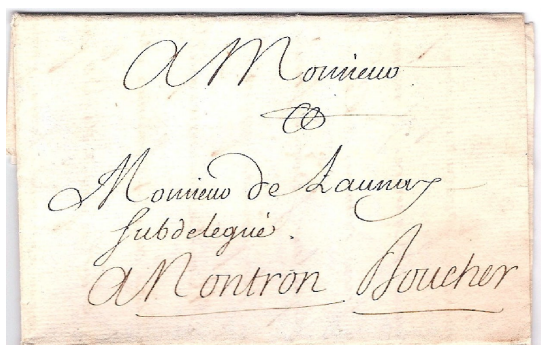 A Monsieur
Monsieur de Launay
Subdelegué.
A Nontron Boucher